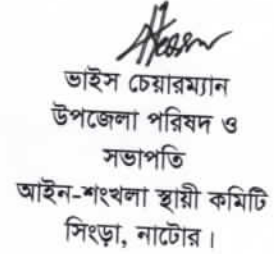 ভাইস চেয়ারম্যান
উপজেলা পরিষদ ও
সভাপতি
আইন-শংখলা স্থায়ী কমিটি
সিংড়া, নাটোর।